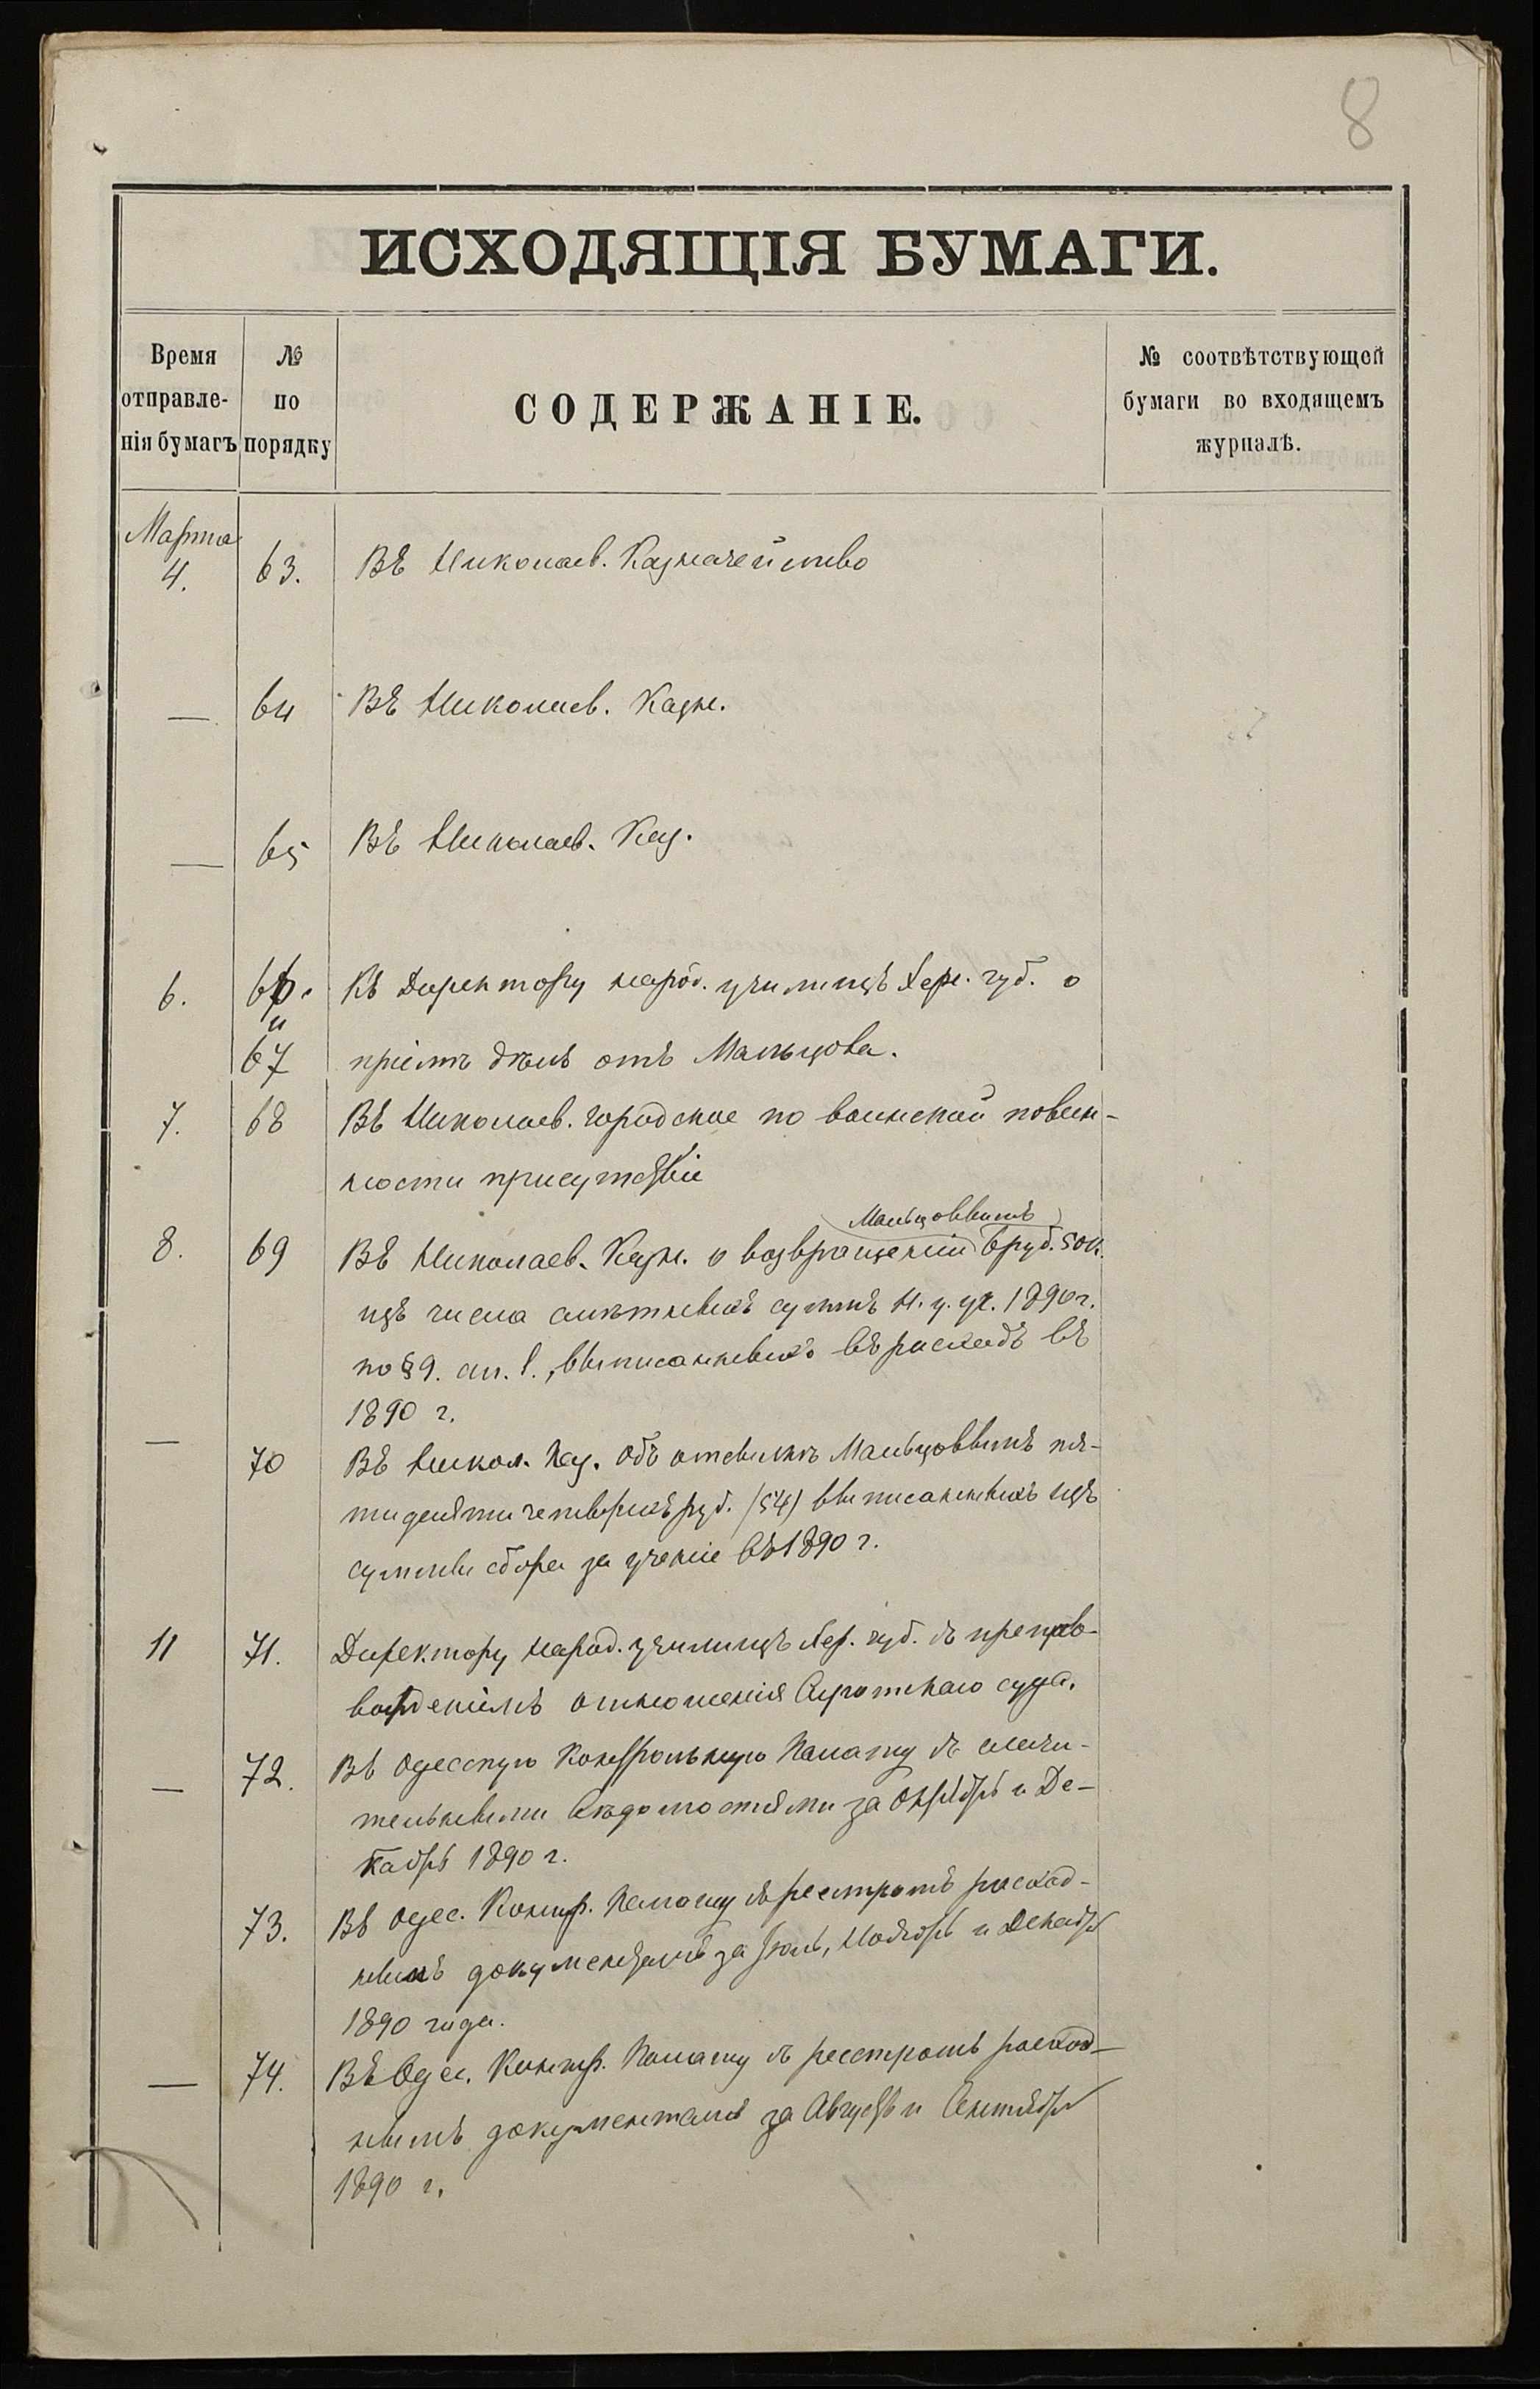 8
ИСХОДЯЩІЯ БУМАГИ.
Время отправле-нія бумагъ
№ по порядку
СОДЕРЖАНІЕ.
№ соотвѣтствующей бумаги во входящемъ журналѣ.
Марта
4. 63. Въ Николаев. Казначейство
— 64 Въ Николаев. Казн.
— 65 Въ Николаев. Каз.
6. 66. Къ Директору народ. училищъ Херс. губ. о
и
67 пріемѣ дѣлъ отъ Мальцова.
7. 68 Въ Николаев. городское по воинской повин-
ности присутствіе
Мальцовымъ
8. 69 Въ Николаев. Казн. о возвращеніи 6 руб. 50 к.
изъ числа смѣтныхъ суммъ Н. у. уч. 1890 г.
по § 9. ст. 1., выписанныхъ въ расходъ въ
1890 г.
— 70 Въ Никол. Каз. объ отсылкѣ Мальцовымъ пя-
тидесяти четырехъ руб. (54) выписанныхъ изъ
суммы сбора за ученіе въ 1890 г.
11 71. Директору народ. училищъ Хер. губ. съ препро-
вожденіемъ отношенія Сиротскаго суда.
— 72. Въ Одесскую Контрольную Палату съ сличи-
тельными вѣдомостями за Октябрь и Де-
кабрь 1890 г.
73. Въ Одес. Контр. Палату съ реестромъ расход-
нымъ документамъ за Іюль, Ноябрь и Декабрь
1890 года.
— 74. Въ Одес. Контр. Палату съ реестромъ расход-
нымъ документамъ за Августъ и Сентябрь
1890 г.